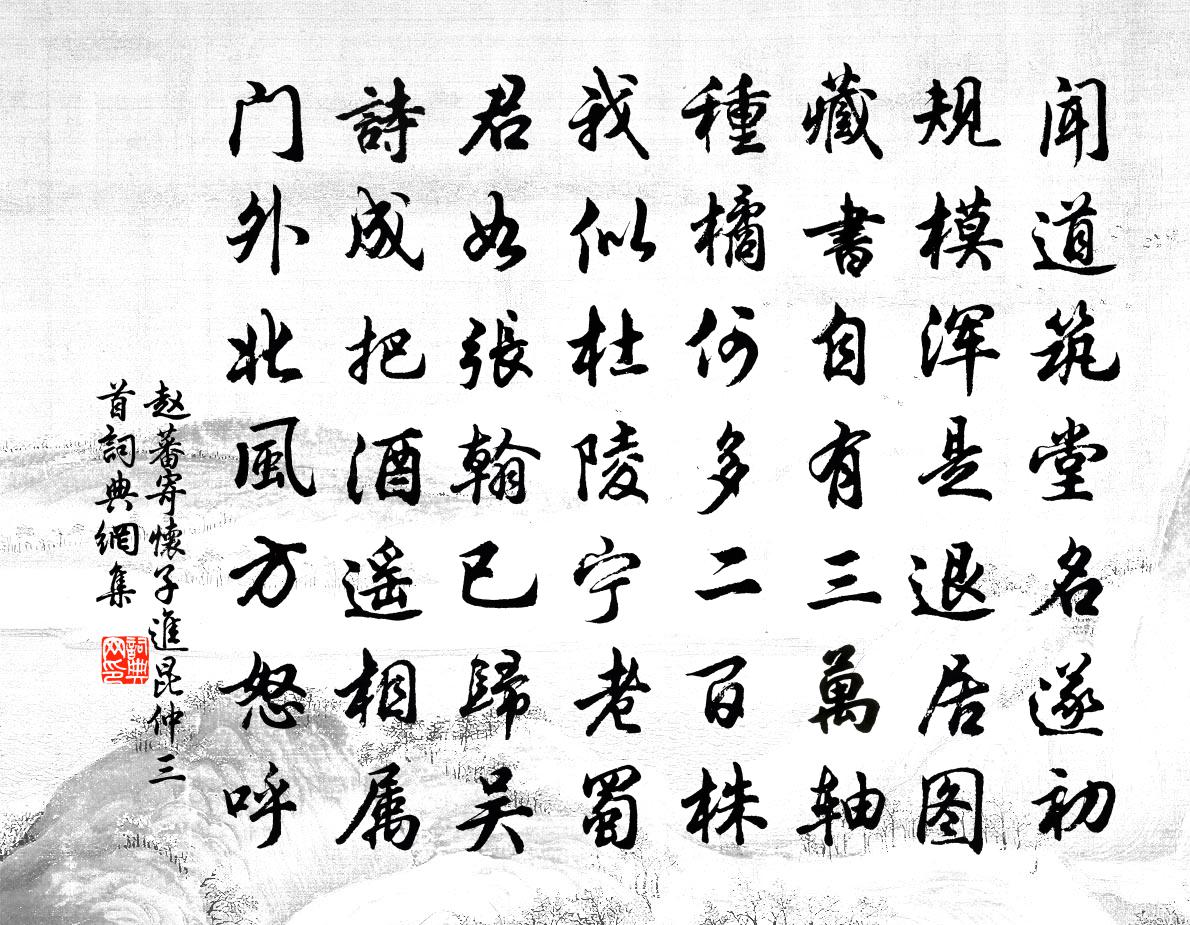 闻道筑堂名遂初
规模浑是退居图
藏書自有三萬轴
種橘何多二百株
我似杜陵宁老蜀
君如張翰已歸吴
詩成把酒遥相属
门外北風方怒呼
赵蕃寄懷子進昆仲三
首詞典網集
詞典网印